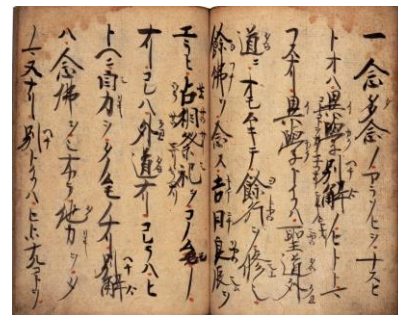 一念多念ノアラソヒヲナスヒ
トオハ異學別解ノヒトヽマ
フスナリ異學トイフハ聖道外
道ニオモムキテ餘行ヲ修シ
餘佛ヲ念ス吉日良辰ヲ
エラヒ占相祭祀ヲコノムモノ
ナリコレハ外道ナリコレラハヒ
トヘニ自力ヲタノムモノナリ別解
ハ念佛ヲシナカラ他力ヲタノ
マヌナリ別トイフハヒトツナルコトヲ